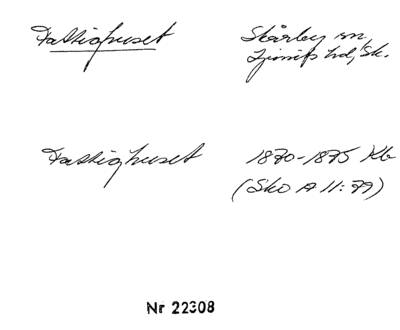 Fattighuset Skårby sn.
Ljunits hd, Sk.
Fattighuset 1870-1875 Kb
(Sko A II:79)
Nr 22308